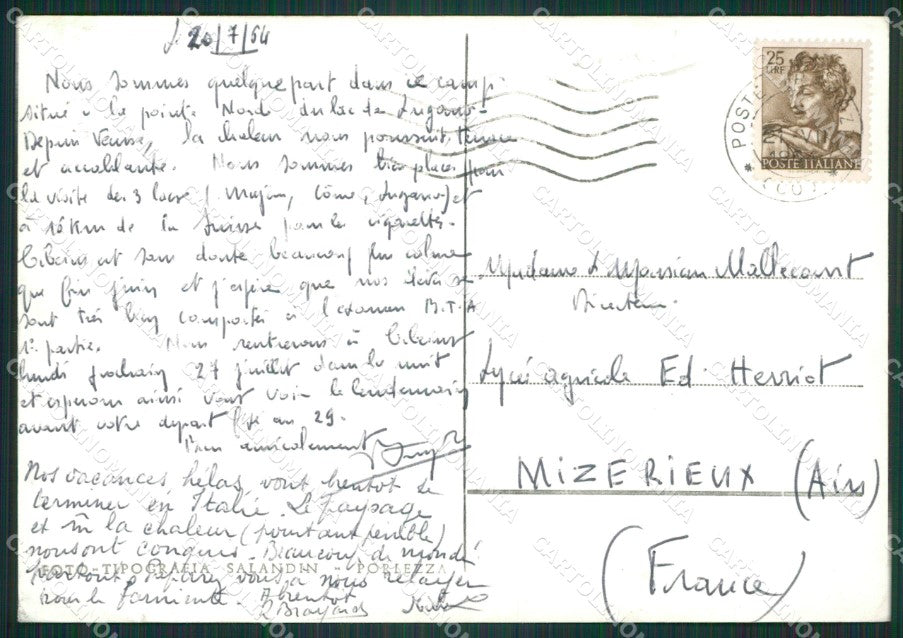 20/7/64
Nous sommes quelque part dans ce camp
situé à la pointe Nord du lac de Lugano.
Depuis Venise, la chaleur nous poursuit, tenace
et accablante. Nous sommes bien placés pour
la visite des 3 lacs (Majeur, Côme, Lugano) et
à 16 Km de la Suisse pour les cigarettes.
Cibeins est sans doute beaucoup plus calme
que fin juin et j'espère que nos élèves se
sont très bien comportés à l'examen B.T.A
1e partie. Nous rentrerons à Cibeins
lundi prochain 27 juillet dans la nuit
et espérons ainsi vous voir le lendemain
avant votre départ fixé au 29.
Bien amicalement
Nos vacances hélas vont bientôt se
terminer en Italie. Le paysage
et la chaleur (pourtant pénible)
nous ont conquis. Beaucoup de monde
partout. vous à nous relayer
pour le farniente. A bientôt
FOTO-TIPOGRAFIA SALANDIN - PORLEZZA
25
LIRE
POSTE ITALIANE
POSTE
(CO)
Madame & Monsieur Mallecourt
Directeur
Lycée agricole Ed Herriot
MIZERIEUX (Ain)
(France)
CARTOLINOMANIA